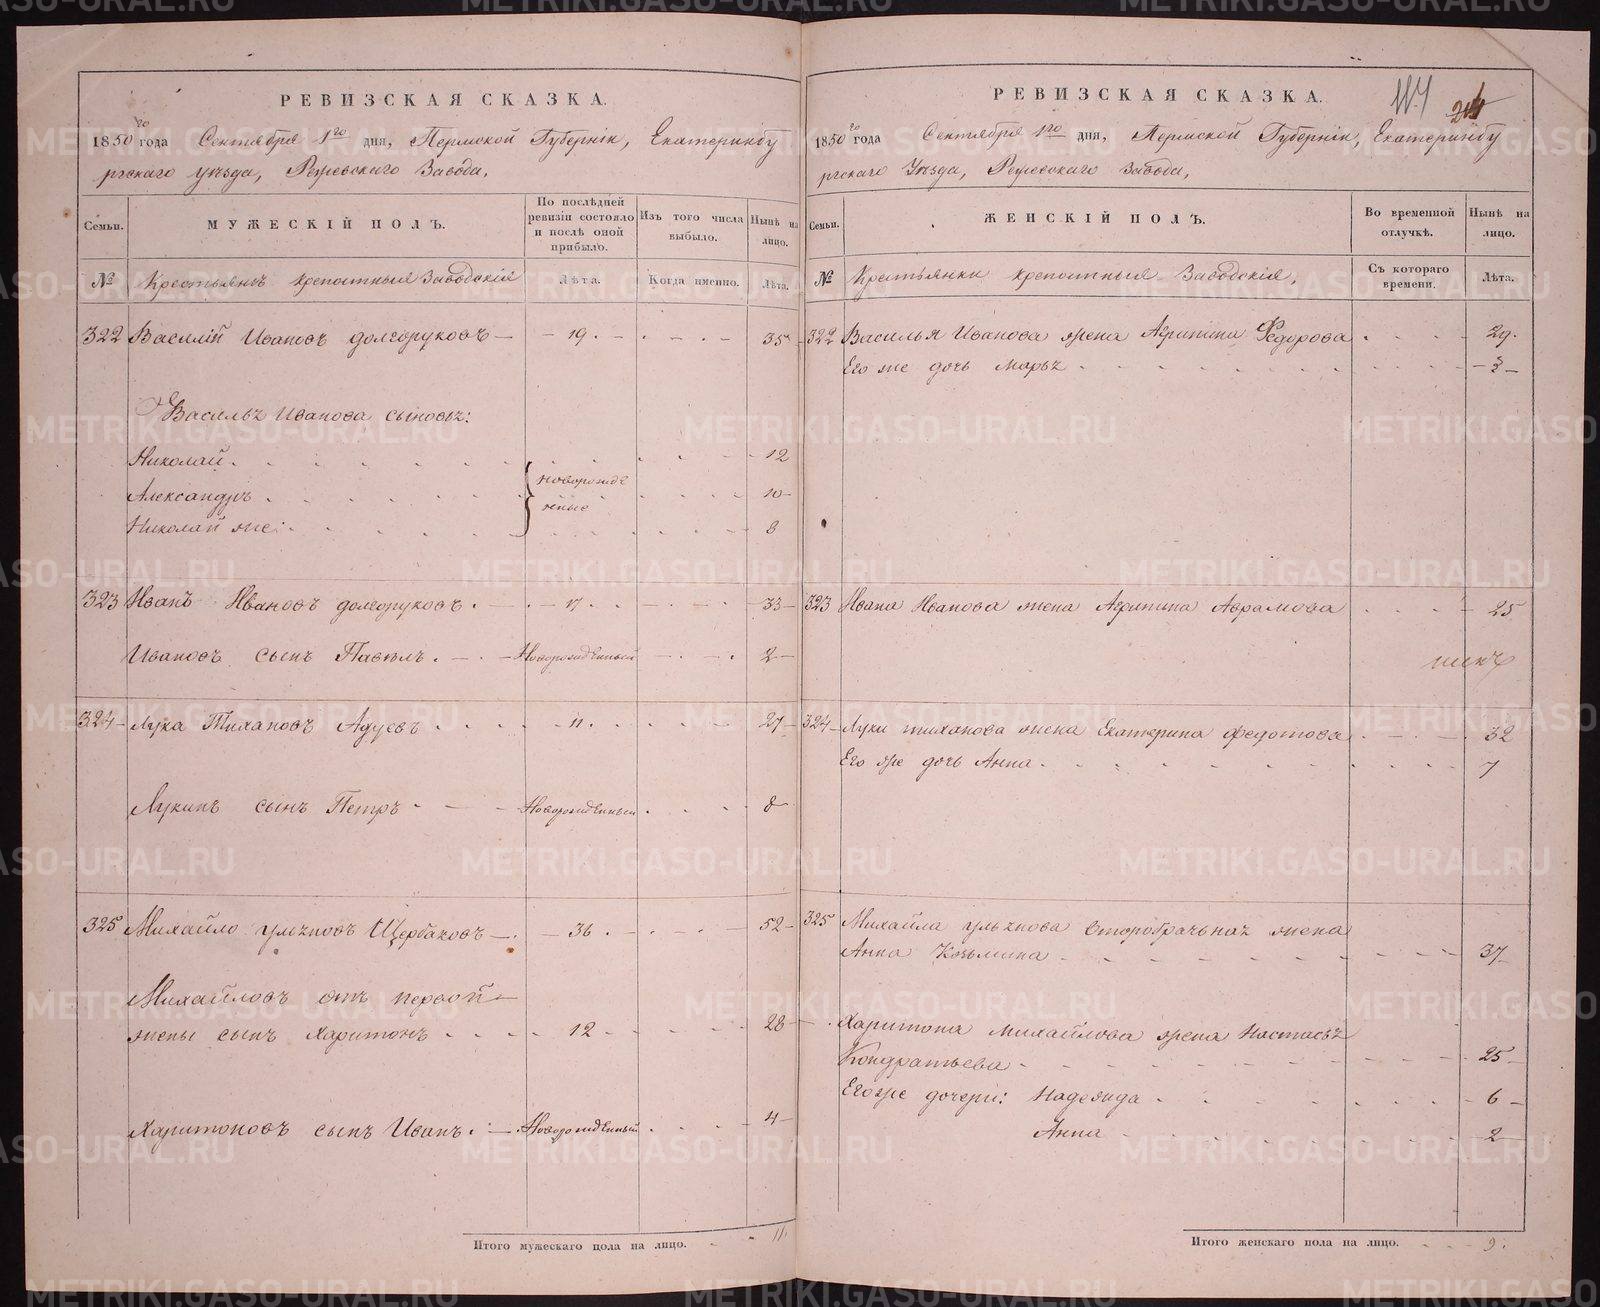 РЕВИЗСКАЯ СКАЗКА.
1850го года Сентября 1го дня, Пермской Губерніи, Екатеринбу
ргскаго уѣзда, Режевскаго Завода,
Семьи.
МУЖЕСКІЙ ПОЛЪ.
По послѣдней ревизіи состояло и послѣ оной прибыло.
Изъ того числа выбыло.
Нынѣ на лицо.
№
Крестьянъ крепостныя Заводскія
Лѣта.
Когда именно.
Лѣта.
322 Василій Ивановъ долгоруковъ 19 35
Василья Иванова сыновья:
Николай 12
Александръ новорожде 10
Николай же: нные 8
323 Иванъ Ивановъ долгоруковъ 17 33
Ивановъ сынъ Павелъ Новорожденный 2
324 Лука Тихановъ Адуевъ 11 27
Лукинъ сынъ Петръ Новорожденный 8
325 Михайло Ульяновъ Щербаковъ 36 52
Михайловъ отъ первой
жены сынъ Харитонъ 12 28
Харитоновъ сынъ Иванъ Новорожденный 4
Итого мужескаго пола на лицо. 11.
РЕВИЗСКАЯ СКАЗКА.
1850го года Сентября 1го дня, Пермской Губерніи, Екатеринбу
ргскаго Уѣзда, Режевскаго завода,
Семьи.
ЖЕНСКІЙ ПОЛЪ.
Во временной отлучкѣ.
Нынѣ на лицо.
№
Крестьянки крепостныя Заводскія,
Съ котораго времени.
Лѣта.
322 Василья Иванова жена Агрипина Федорова 29.
Его же дочь Марья 3
323 Ивана Иванова жена Агрипина Аврамова 25
324 Луки тиханова жена Екатерина федотова 32
Его же дочь Анна 7
325 Михайла ульянова Второбрачьная жена
Анна Козьмина 37
Харитона михайлова жена Настасья
Кондратьева 25
Его же дочери: Надежда 6
Анна 2
Итого женскаго пола на лицо. 9.
METRIKI.GASO-URAL.RU